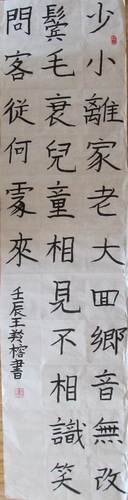 少小離家老大回鄉音無改
鬢毛衰兒童相見不相識笑
問客從何處來
壬辰王羚榕書